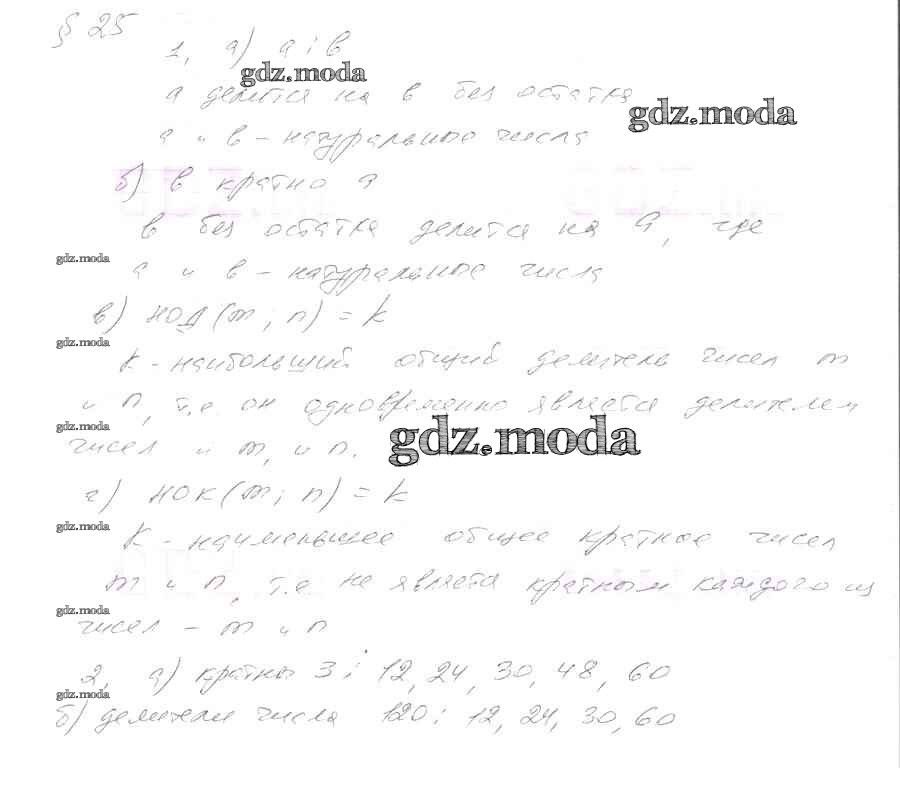 § 25
1, а) а ⋮ в
gdz.moda
а делится на в без остатка
gdz.moda
а и в - натуральное числа
б) в кратно а
в без остатка делится на а, где
gdz.moda
а и в - натуральное числа
в) НОД (m ; n) = k
gdz.moda
k - наибольший общий делитель чисел m
и n, т.е. он одновременно является делителем
gdz.moda
чисел и m, и n.
gdz.moda
г) НОК (m ; n) = k
gdz.moda
k - наименьшее общее кратное чисел
m и n, т.е. не явлется кратным каждого из
gdz.moda
чисел - m и n
2, а) кратны 3 : 12, 24, 30, 48, 60
gdz.moda
б) делители числа 120 : 12, 24, 30, 60